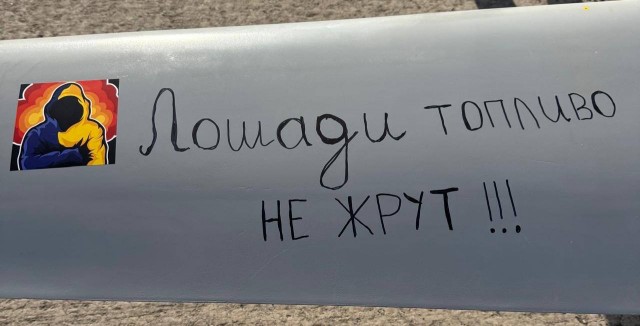 Лошади топливо
НЕ ЖРУТ !!!